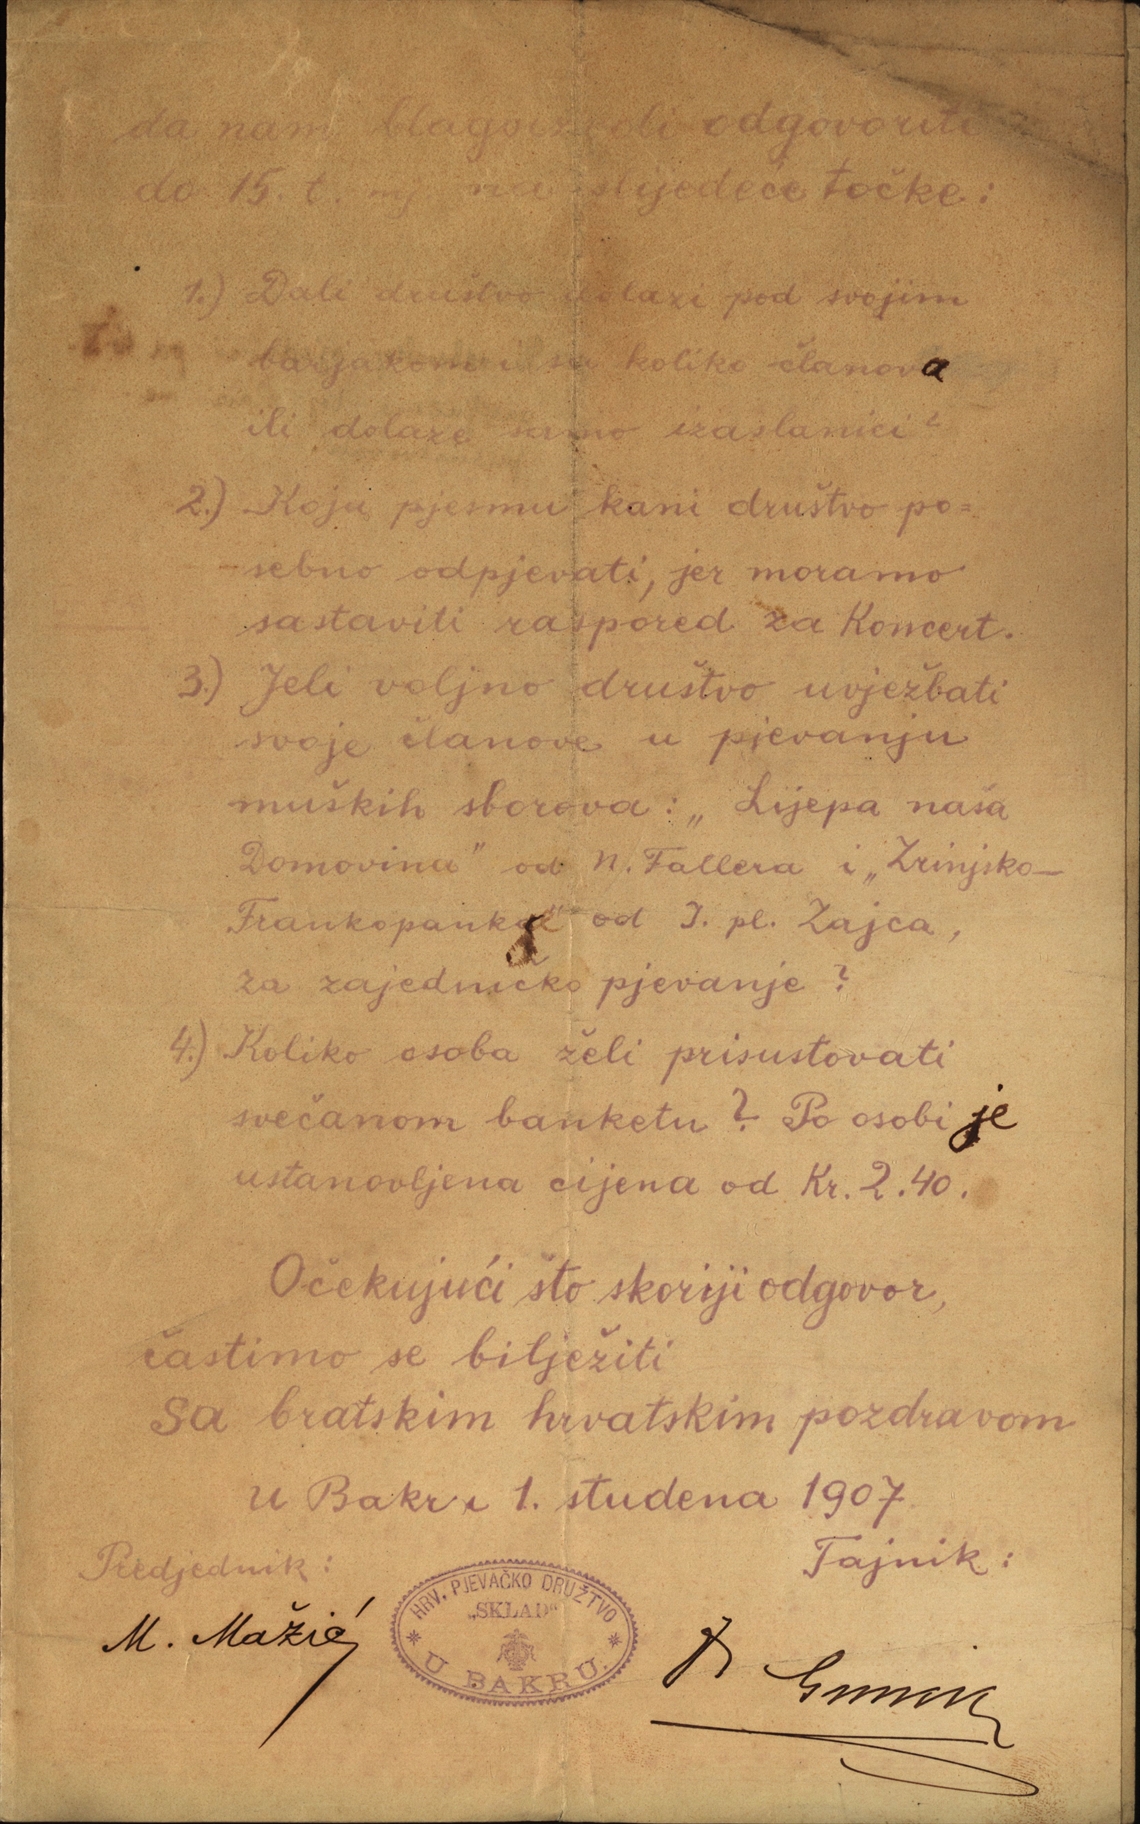 da nam blagoizvoli odgovoriti
do 15. t. mj na slijedeće točke:
1.) Dali družtvo dolazi pod svojim
barjakom i sa koliko članova
ili dolaze samo izaslanici?
2.) Koju pjesmu kani družtvo po=
sebno odpjevati, jer moramo
sastaviti raspored za Koncert.
3.) Jeli voljno družtvo uvježbati
svoje članove u pjevanju
muških sborova: „Lijepa naša
Domovina" od N. Fallera i „Zrinjsko-
Frankopanka" od I. pl. Zajca,
za zajedničko pjevanje?
4.) Koliko osoba želi prisustovati
svečanom banketu? Po osobi je
ustanovljena cijena od Kr. 2.40.
Očekujući što skoriji odgovor,
častimo se bilježiti
Sa bratskim hrvatskim pozdravom
U Bakru 1. studena 1907
Predjednik:
Tajnik:
M. Mažić
HRV. PJEVAČKO DRUŽTVO
„SKLAD"
U BAKRU.